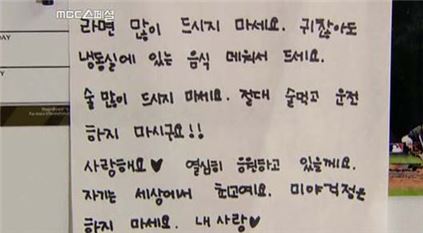 MBC스페셜
라면 많이 드시지 마세요. 귀찮아도
냉동실에 있는 음식 데워서 드세요.
술 많이 드시지 마세요. 절대 술먹고 운전
하지 마시구요!!
사랑해요♥ 열심히 응원하고 있을께요.
자기는 세상에서 최고예요. 미야걱정은
하지 마세요. 내사랑♥
DAY